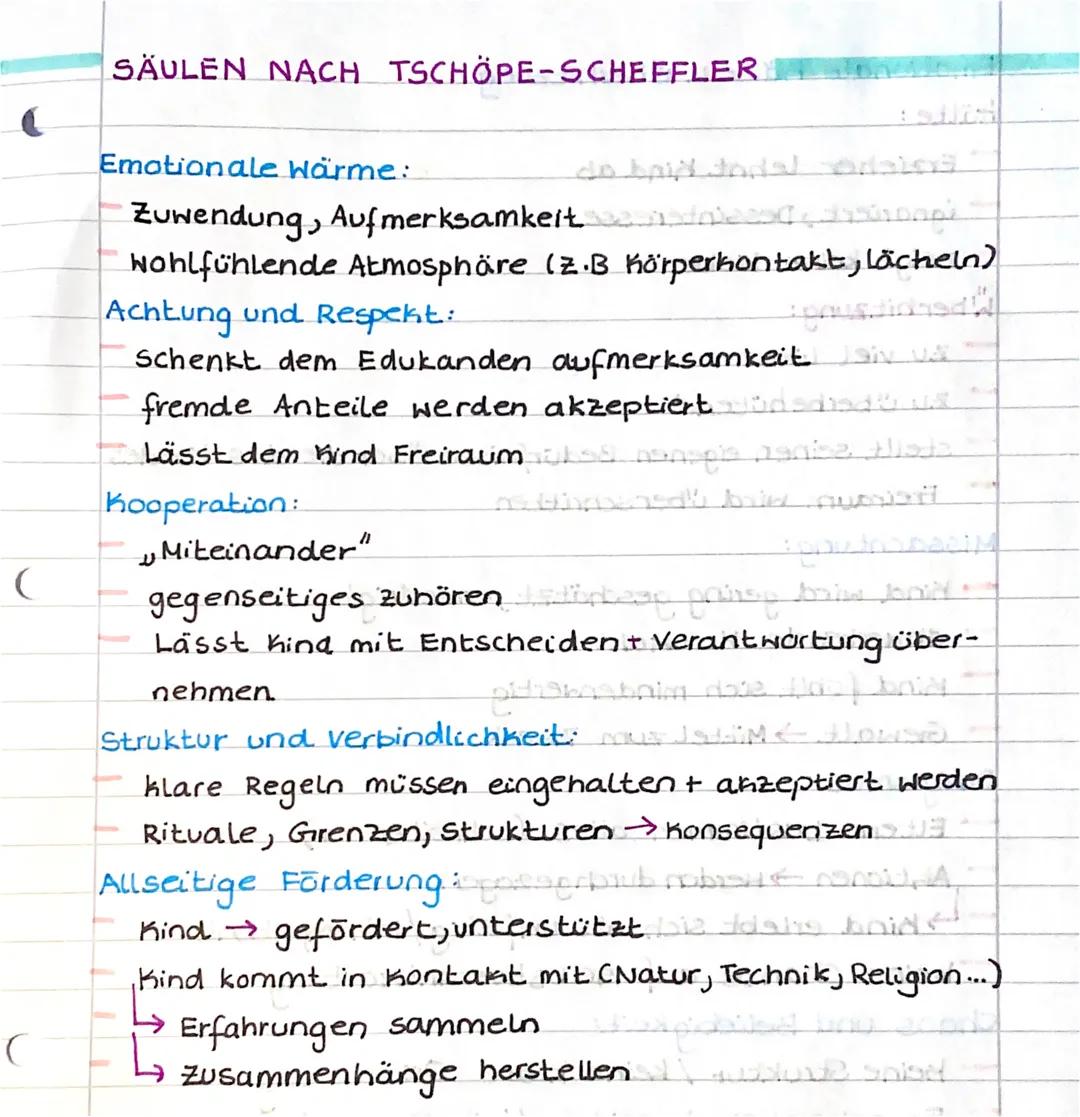 SÄULEN NACH TSCHÖPE-SCHEFFLER
Emotionale Wärme:
- Zuwendung, Aufmerksamkeit
- Wohlfühlende Atmosphäre (z.B Körperkontakt, lächeln)
Achtung und Respekt:
- Schenkt dem Edukanden aufmerksamkeit
- fremde Anteile werden akzeptiert
- Lässt dem Kind Freiraum
Kooperation:
- „Miteinander"
- gegenseitiges zuhören
- Lässt Kind mit Entscheiden + Verantwortung über-
nehmen
Struktur und Verbindlichkeit:
- klare Regeln müssen eingehalten + akzeptiert werden
- Rituale, Grenzen, Strukturen → Konsequenzen
Allseitige Förderung:
- Kind → gefördert, unterstützt
- Kind kommt in Kontakt mit (Natur, Technik, Religion...)
- ↳ Erfahrungen sammeln
- ↳ Zusammenhänge herstellen